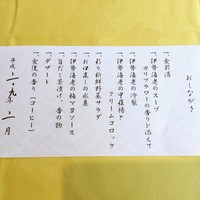 おしながき
一、食前酒
一、伊勢海老のスープ
カリフラワーの香りを添えて
一、伊勢海老の冷製
一、伊勢海老の甲羅焼と
クリームコロッケ
一、彩り新鮮野菜サラダ
一、お口直しの氷菓
一、伊勢海老の梅マヨソース
一、旨だし茶漬け、香の物
一、デザート
一、食後の香り（コーヒー）
平成二十九年十一月